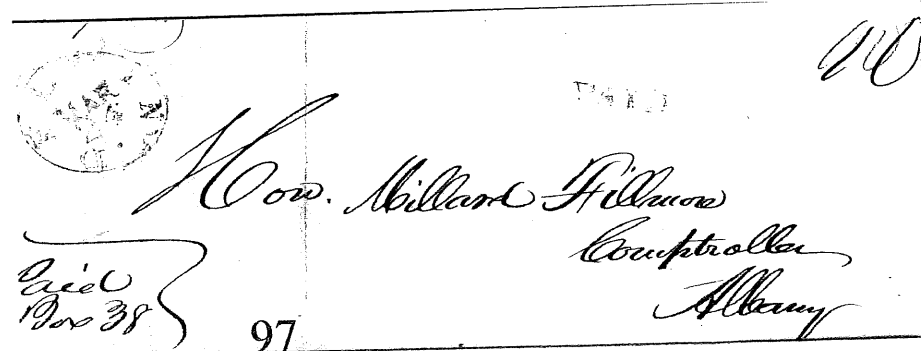 Hon. Millard Fillmore
Comptroller
Albany
Paid
Box 38
97